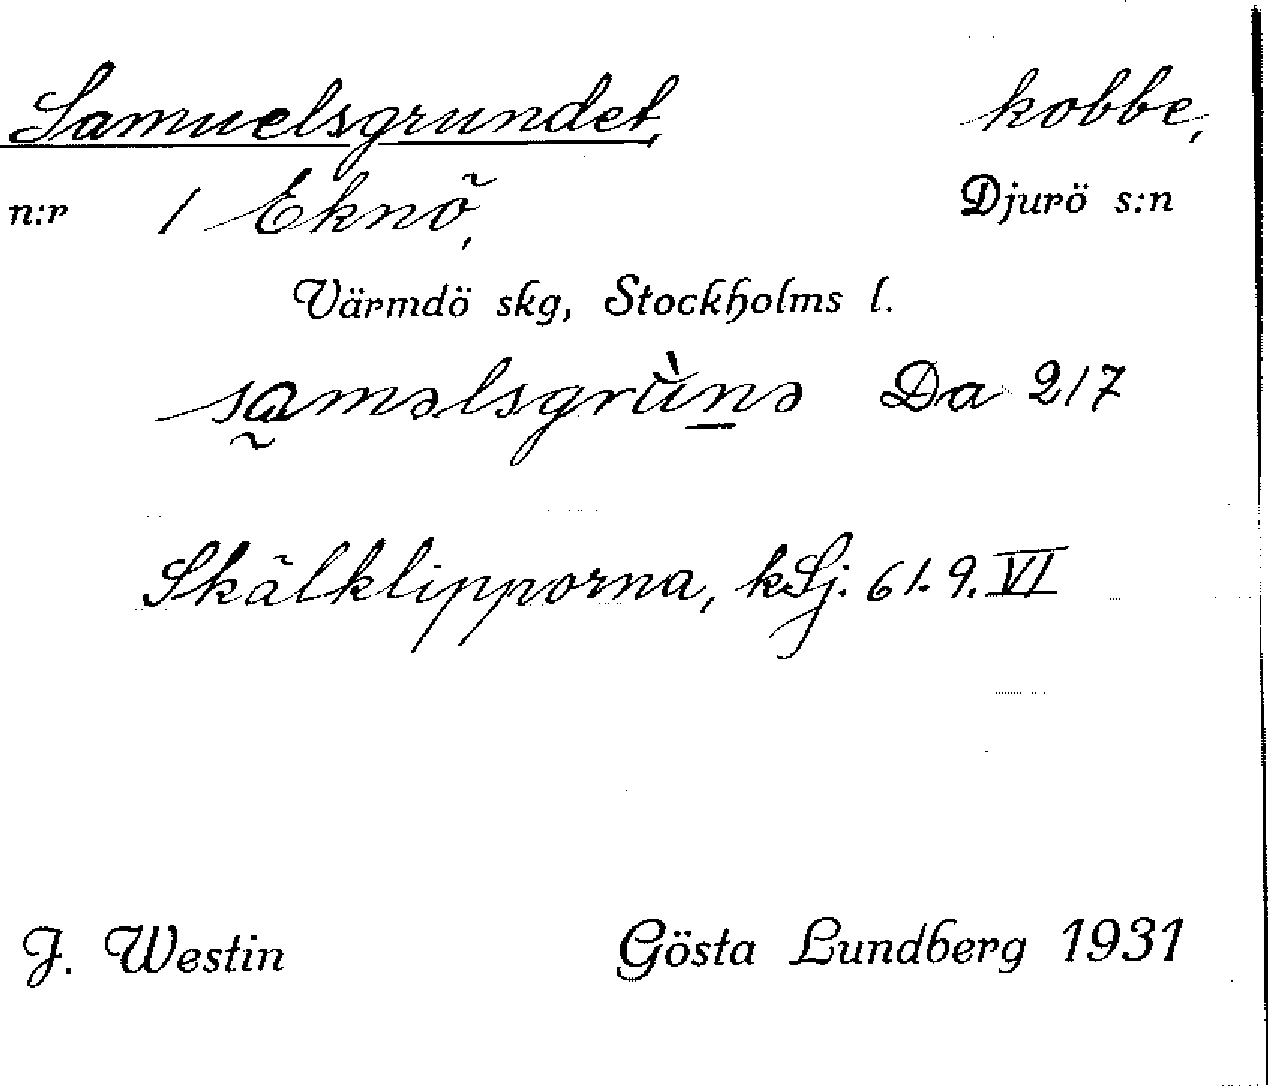 Samuelsgrundet, kobbe,
n:r 1 Eknö, Djurö s:n
Värmdö skg, Stockholms l.
sa̰məlsgrùn̲ə Da 217
Skälklipporna, kSj. 61.9.VI
J. Westin Gösta Lundberg 1931